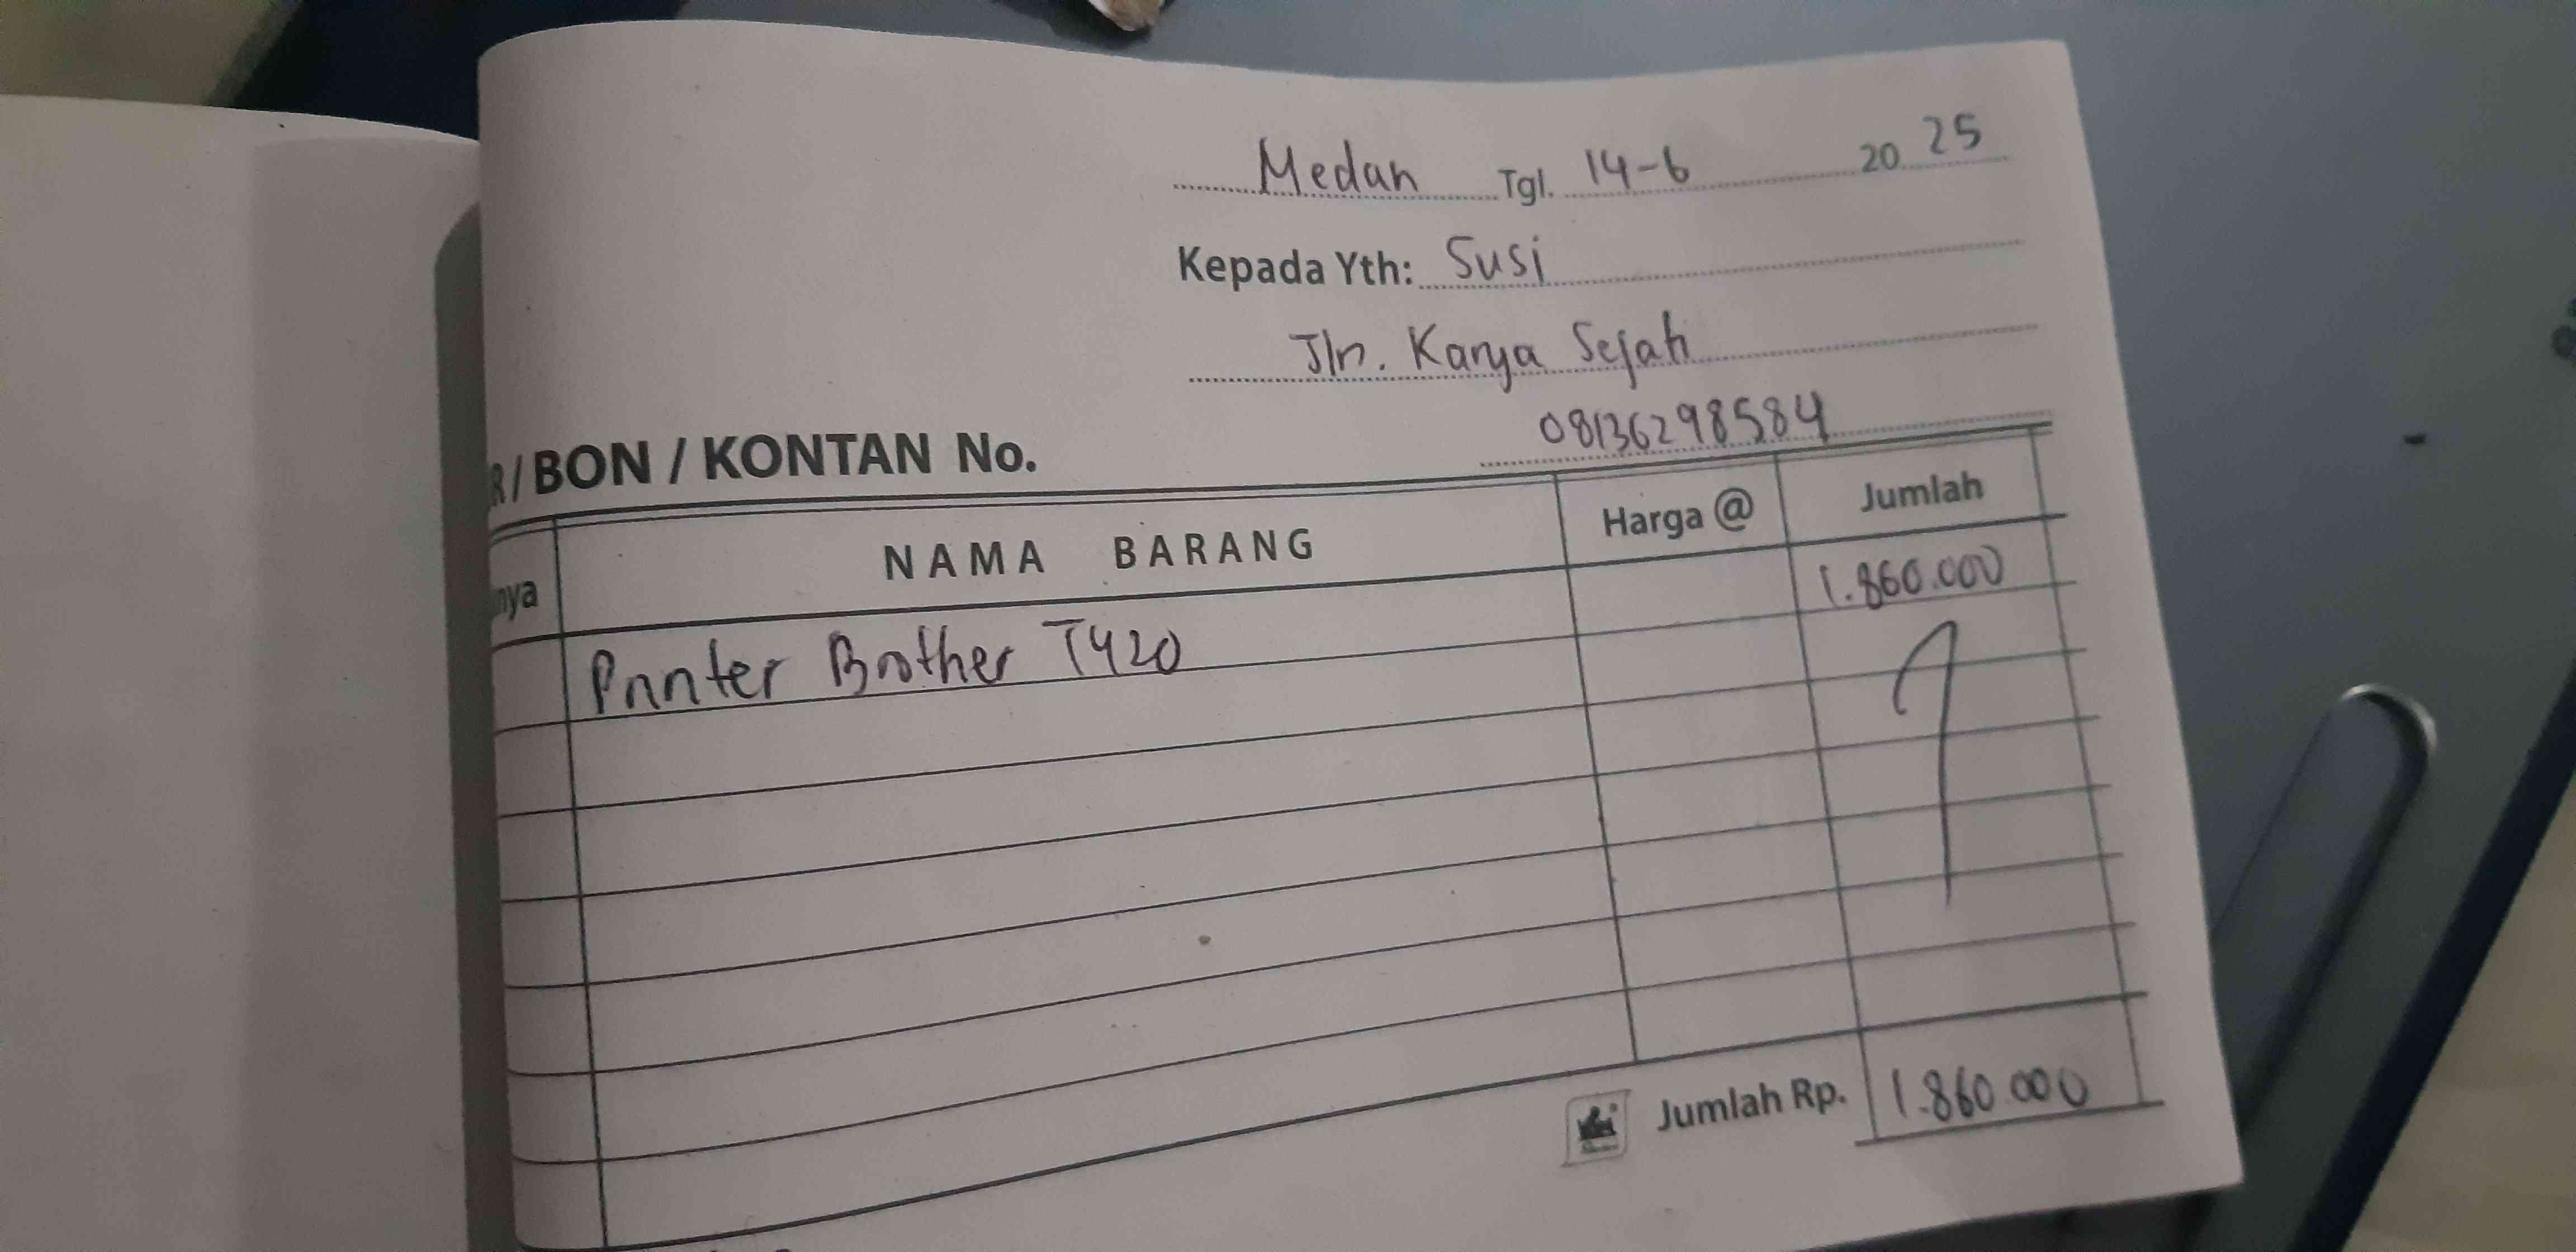 Medan Tgl. 14-6 2025
Kepada Yth: Susi
Jln. Karya Sejati
08136298584
R/BON / KONTAN No.
nya NAMA BARANG Harga @ Jumlah
1.860.000
Printer Brother T420
Jumlah Rp. 1.860.000